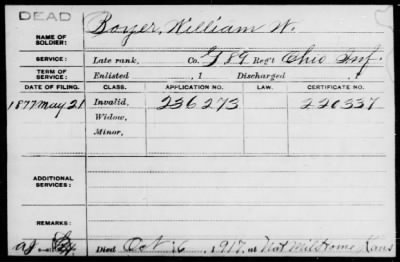 DEAD
NAME OF SOLDIER: Boyer, William W.
SERVICE: Late rank, Co. G 89 Reg't Ohio Inf.
TERM OF SERVICE: Enlisted , 1 Discharged , 1
DATE OF FILING. CLASS. APPLICATION NO. LAW. CERTIFICATE NO.
1877 May 21 Invalid, 236273 220337
Widow,
Minor,
ADDITIONAL SERVICES:
REMARKS:
Died Oct 6, 1917, at Nat Mil Home Kans